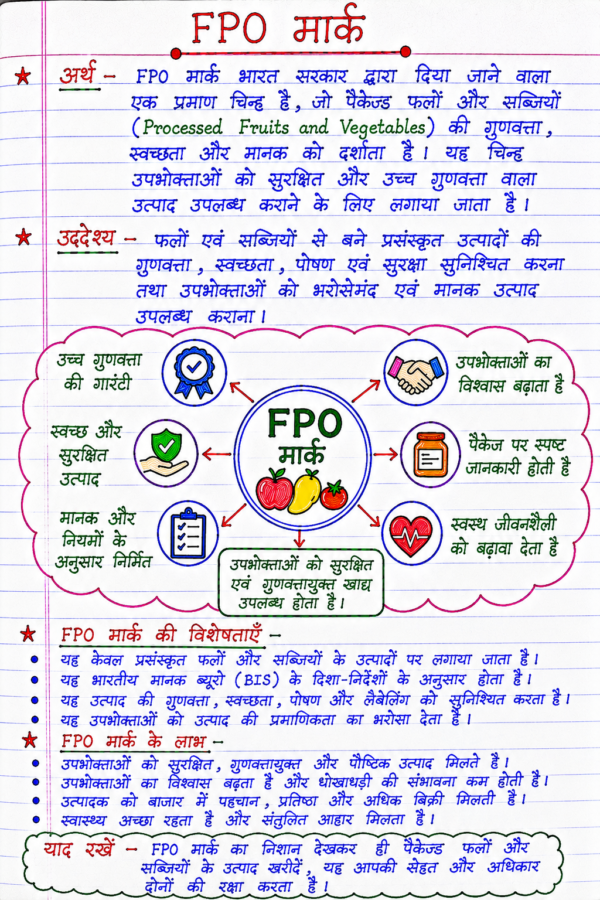 FPO मार्क
★ अर्थ – FPO मार्क भारत सरकार द्वारा दिया जाने वाला
एक प्रमाण चिन्ह है, जो पैकेज्ड फलों और सब्जियों
(Processed Fruits and Vegetables) की गुणवत्ता,
स्वच्छता और मानक को दर्शाता है। यह चिन्ह
उपभोक्ताओं को सुरक्षित और उच्च गुणवत्ता वाला
उत्पाद उपलब्ध कराने के लिए लगाया जाता है।
★ उददेश्य – फलों एवं सब्जियों से बने प्रसंस्कृत उत्पादों की
गुणवत्ता, स्वच्छता, पोषण एवं सुरक्षा सुनिश्चित करना
तथा उपभोक्ताओं को भरोसेमंद एवं मानक उत्पाद
उपलब्ध कराना।
उच्च गुणवत्ता
की गारंटी
स्वच्छ और
सुरक्षित
उत्पाद
मानक और
नियमों के
अनुसार निर्मित
FPO
मार्क
उपभोक्ताओं का
विश्वास बढ़ाता है
पैकेज पर स्पष्ट
जानकारी होती है
स्वस्थ जीवनशैली
को बढ़ावा देता है
उपभोक्ताओं को सुरक्षित
एवं गुणवत्तायुक्त खाद्य
उपलब्ध होता है।
★ FPO मार्क की विशेषताएँ –
• यह केवल प्रसंस्कृत फलों और सब्जियों के उत्पादों पर लगाया जाता है।
• यह भारतीय मानक ब्यूरो (BIS) के दिशा-निर्देशों के अनुसार होता है।
• यह उत्पाद की गुणवत्ता, स्वच्छता, पोषण और लैबेलिंग को सुनिश्चित करता है।
• यह उपभोक्ताओं को उत्पाद की प्रमाणिकता का भरोसा देता है।
★ FPO मार्क के लाभ –
• उपभोक्ताओं को सुरक्षित, गुणवत्तायुक्त और पौष्टिक उत्पाद मिलते है।
• उपभोक्ताओं का विश्वास बढ़ता है और धोखाधड़ी की संभावना कम होती है।
• उत्पादक को बाजार में पहचान, प्रतिष्ठा और अधिक बिक्री मिलती है।
• स्वास्थ्य अच्छा रहता है और संतुलित आहार मिलता है।
याद रखें – FPO मार्क का निशान देखकर ही पैकेज्ड फलों और
सब्जियों के उत्पाद खरीदें, यह आपकी सेहत और अधिकार
दोनों की रक्षा करता है।